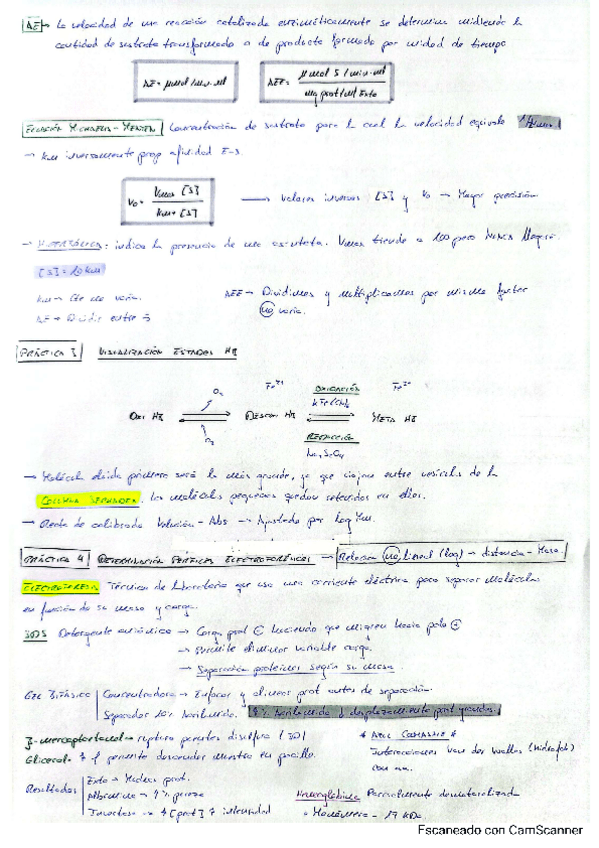 AE → La velocidad de una reacción catalizada enzimáticamente se determina midiendo la
cantidad de sustrato transformado o de producto formado por unidad de tiempo
AE = μmol/min·ml
AEE = μmol S/min·ml
mg prot/ml Exto
ECUACIÓN MICHAELIS-MENTEN Concentración de sustrato para la cual la velocidad equivale 1/2 Vmax
→ Km inversamente prop afinidad E-S.
V0 = Vmax [S]
Km + [S]
→ Valores inversos [S] y V0 → Mayor precisión
→ HIPERBÓLICA: indica la presencia de una asíntota. Vmax tiende a 100 pero NUNCA llegará.
[S] = 10 Km
Km → Cte no varía.
AE → Dividir entre 5
AEE → Dividimos y multiplicamos por mismo factor
no varía.
PRÁCTICA 3 VISUALIZACIÓN ESTADOS Hb
O2 Fe2+ OXIDACIÓN Fe3+
Oxi Hb Desoxi Hb Meta Hb
O2 REDUCCIÓN
Na2S2O4
→ Molécula eluida primero será la más grande, ya que viajan entre vesículas de la
COLUMNA SEPHADEX, las moléculas pequeñas quedan retenidas en ellas.
→ Recta de calibrado Volución - Abs → Ajustado por log Mm.
PRÁCTICA 4 DETERMINACIÓN ELECTROFORÉTICOS → Relación no lineal (log) → distancia - Masa.
ELECTROFORESIS Técnica de laboratorio que usa una corriente eléctrica para separar moléculas
en función de su masa y carga.
SDS Detergente aniónico → Carga prot ⊖ haciendo que migren hacia polo ⊕
→ Permite eliminar variable carga.
→ Separación proteínas según su masa.
GEL BIFÁSICO Concentradora → Enfocar y alinear prot antes de separación.
Separador 10% Acrilamida. ↑% Acrilamida ↓ desplazamiento prot grandes.
β-mercaptoetanol → ruptura puentes disulfuro (3D) * AZUL COMASSIE *
Glicerol → ↑ ρ permite desnaturalizar muestra en pocillo. Interacciones Van der Walls (hidrofób)
con aa.
Resultados Exto → Muchas prot. Hemoglobina Parcialmente desnaturalizada
Albúmina → ↑% pureza
→ ↑[prot] ↑ intensidad • Monómero - 17 kDa.
Escaneado con CamScanner